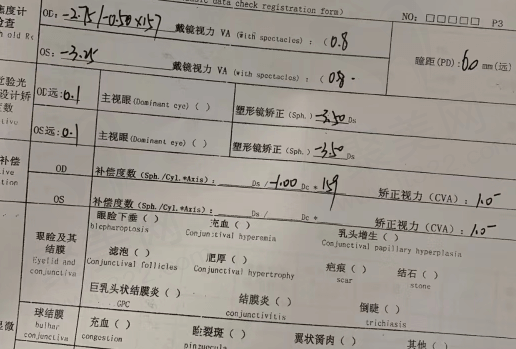 data check registration form)
NO: □□□□□ P3
焦度计
OD: -2.75/-0.50×157
戴镜视力 VA (with spectacles) : ( 0.8
瞳距(PD): 60 mm(远)
OS: -3.25
戴镜视力 VA (with spectacles) : ( 0.8
OD远: 0.1
主视眼(Dominant eye) ( )
塑形镜矫正 (Sph.) -3.50 Ds
OS远: 0.1
主视眼(Dominant eye) ( )
塑形镜矫正 (Sph.) -3.50 Ds
补偿
OD
补偿度数 (Sph./Cyl.*Axis): Ds / -1.00 Dc * 159
矫正视力 (CVA) : 1.0
OS
补偿度数 (Sph./Cyl.*Axis): Ds / Dc *
矫正视力 (CVA) : 1.0
眼睑及其
结膜
Eyelid and
conjunctiva
眼睑下垂 ( )
blepharoptosis
充血 ( )
Conjunctival hyperemia
乳头增生 ( )
Conjunctival papillary hyperplasia
滤泡 ( )
Conjunctival follicles
肥厚 ( )
Conjunctival hypertrophy
疤痕 ( )
scar
结石 ( )
stone
巨乳头状结膜炎 ( )
GPC
结膜炎 ( )
conjunctivitis
倒睫 ( )
trichiasis
球结膜
bulbar
conjunctiva
充血 ( )
congestion
睑裂斑 ( )
pinguecula
翼状胬肉 ( )
其他 (